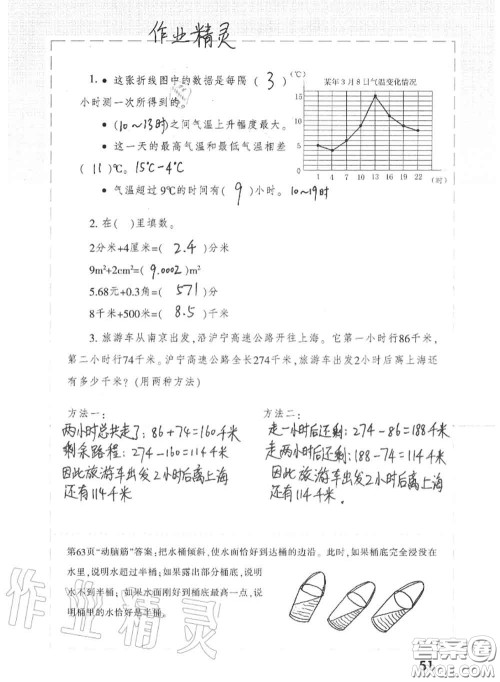 作业精灵
1. • 这张折线图中的数据是每隔（ 3 ）
小时测一次所得到的。
•（10～13时）之间气温上升幅度最大。
• 这一天的最高气温和最低气温相差
（ 11 ）℃。15℃-4℃
• 气温超过9℃的时间有（ 9 ）小时。10～19时
(℃) 某年3月8日气温变化情况
15
10
5
0
1 4 7 10 13 16 19 22 (时)
2. 在（ ）里填数。
2分米+4厘米=( 2.4 )分米
9m²+2cm²=( 9.0002 )m²
5.68元+0.3角=( 571 )分
8千米+500米=( 8.5 )千米
3. 旅游车从南京出发，沿沪宁高速公路开往上海。它第一小时行86千米，
第二小时行74千米。沪宁高速公路全长274千米，旅游车出发2小时后离上海还
有多少千米？(用两种方法)
方法一：
两小时总共走了：86+74=160千米
剩余路程：274-160=114千米
因此旅游车出发2小时后离上海
还有114千米
方法二：
走一小时后还剩：274-86=188千米
走两小时后还剩：188-74=114千米
因此旅游车出发2小时后离上海
还有114千米
第63页“动脑筋”答案：把水桶倾斜，使水面恰好到达桶的边沿。此时，如果桶底完全浸没在
水里，说明水超过半桶；如果露出部分桶底，说明
水不到半桶；如果水面刚好到桶底最高一点，说
明桶里的水恰好是半桶。
作业精灵
答案圈
MXQE.COM
51